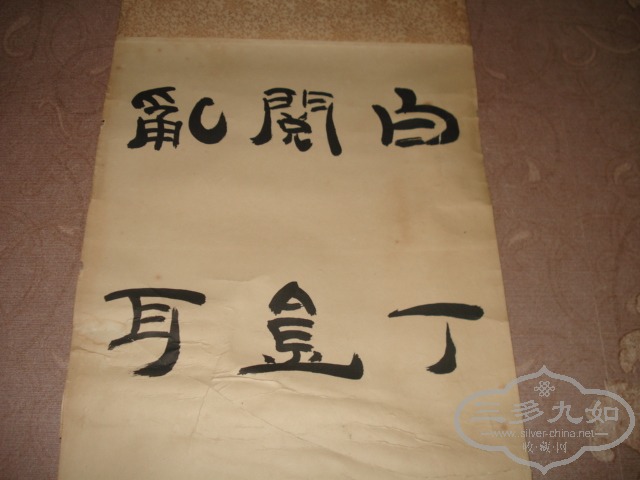 白丁
閱金
亂耳
三多九如
www.silver-china.net
收·藏·网